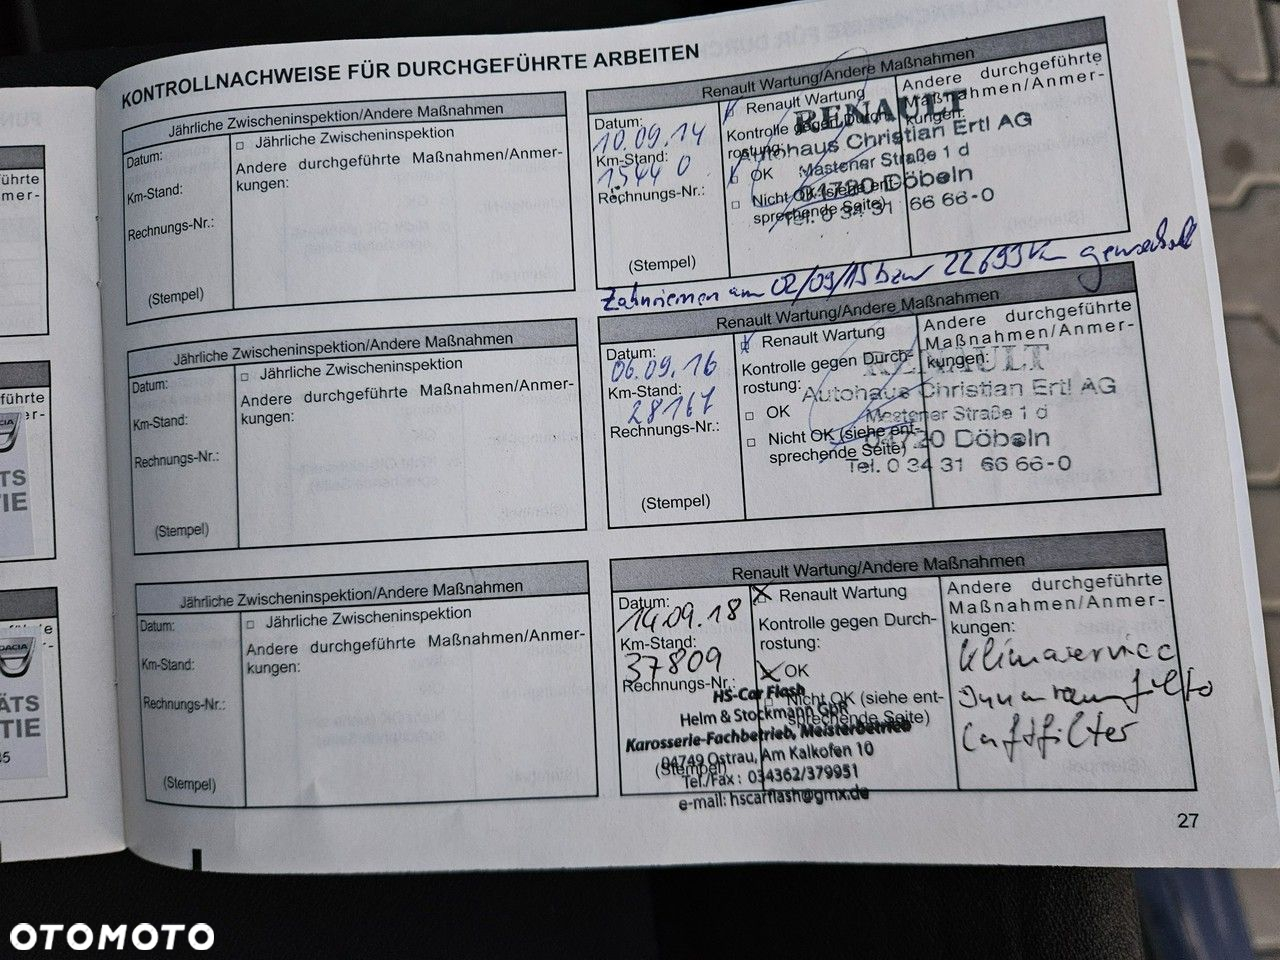 KONTROLLNACHWEISE FÜR DURCHGEFÜHRTE ARBEITEN
Jährliche Zwischeninspektion/Andere Maßnahmen
Datum:
Km-Stand:
Rechnungs-Nr.:
(Stempel)
□ Jährliche Zwischeninspektion
Andere durchgeführte Maßnahmen/Anmer-
kungen:
Renault Wartung/Andere Maßnahmen
Datum:
10.09.14
Km-Stand:
15440
Rechnungs-Nr.:
(Stempel)
Renault Wartung
Kontrolle gegen Durch-
rostung:
OK
□ Nicht OK (siehe ent-
sprechende Seite)
Andere durchgeführte
Maßnahmen/Anmer-
kungen:
RENAULT
Autohaus Christian Ertl AG
Mastener Straße 1 d
04720 Döbeln
Tel. 0 34 31 66 66-0
Zahnriemen am 02/09/15 bzw 22699 km gewechselt
Jährliche Zwischeninspektion/Andere Maßnahmen
Datum:
Km-Stand:
Rechnungs-Nr.:
(Stempel)
□ Jährliche Zwischeninspektion
Andere durchgeführte Maßnahmen/Anmer-
kungen:
Renault Wartung/Andere Maßnahmen
Datum:
06.09.16
Km-Stand:
28167
Rechnungs-Nr.:
(Stempel)
Renault Wartung
Kontrolle gegen Durch-
rostung:
□ OK
□ Nicht OK (siehe ent-
sprechende Seite)
Andere durchgeführte
Maßnahmen/Anmer-
kungen:
RENAULT
Autohaus Christian Ertl AG
Mastener Straße 1 d
04720 Döbeln
Tel. 0 34 31 66 66-0
Jährliche Zwischeninspektion/Andere Maßnahmen
Datum:
Km-Stand:
Rechnungs-Nr.:
(Stempel)
□ Jährliche Zwischeninspektion
Andere durchgeführte Maßnahmen/Anmer-
kungen:
Renault Wartung/Andere Maßnahmen
Datum:
14.09.18
Km-Stand:
37809
Rechnungs-Nr.:
(Stempel)
Renault Wartung
Kontrolle gegen Durch-
rostung:
OK
Nicht OK (siehe ent-
sprechende Seite)
Andere durchgeführte
Maßnahmen/Anmer-
kungen:
Klimaservice
Innenraumfilter
Luftfilter
HS-Car Flash
Helm & Stockmann GbR
Karosserie-Fachbetrieb, Meisterbetrieb
04749 Ostrau, Am Kalkofen 10
Tel./Fax : 034362/379951
e-mail: hscarflash@gmx.de
27
OTOMOTO